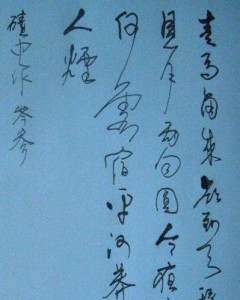 走馬西來欲到天辞
見月兩回圓今夜
何處宿平沙莽
人煙
磧中作 岑參